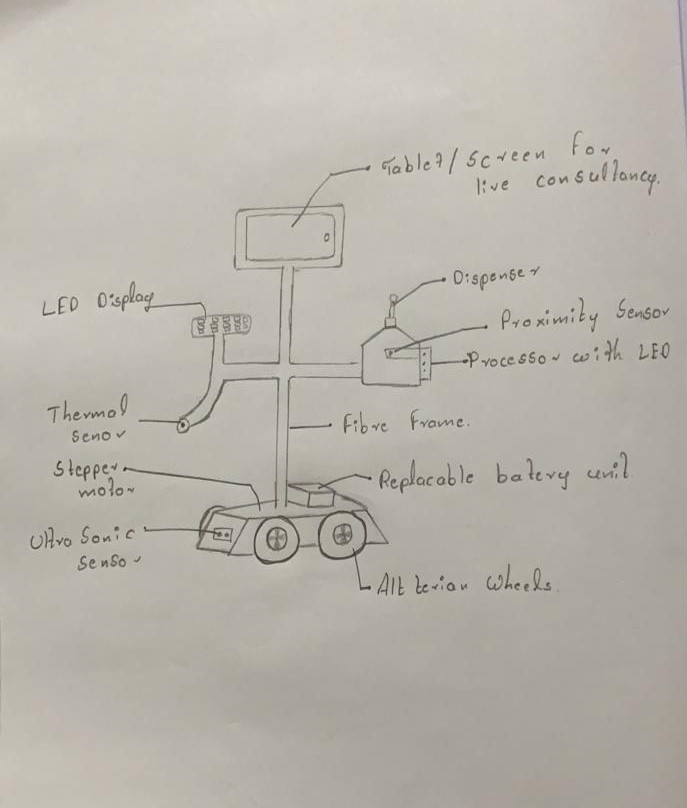 Tablet / Screen For
live consultancy.
Dispenser
LED Display
Proximity Sensor
Processor with LED
Thermal
Senor
Fibre Frame.
Stepper
motor
Replacable batery unit
Ultro Sonic
Sensor
Allt terian Wheels.